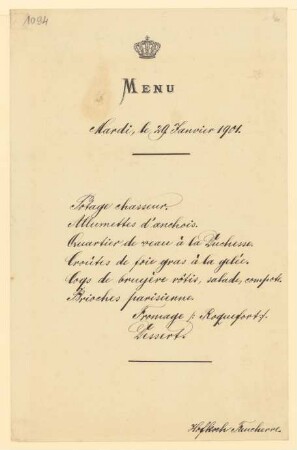 1094
MENU
Mardi, le 29 Janvier 1901.
Potage chasseur.
Allumettes d'anchois.
Quartier de veau à la Duchesse.
Croûtes de foie gras à la gelée.
Coqs de bruyère rôtis, salade, compote.
Brioches parisienne.
Fromage (: Roquefort :).
Dessert.
Hofkoch